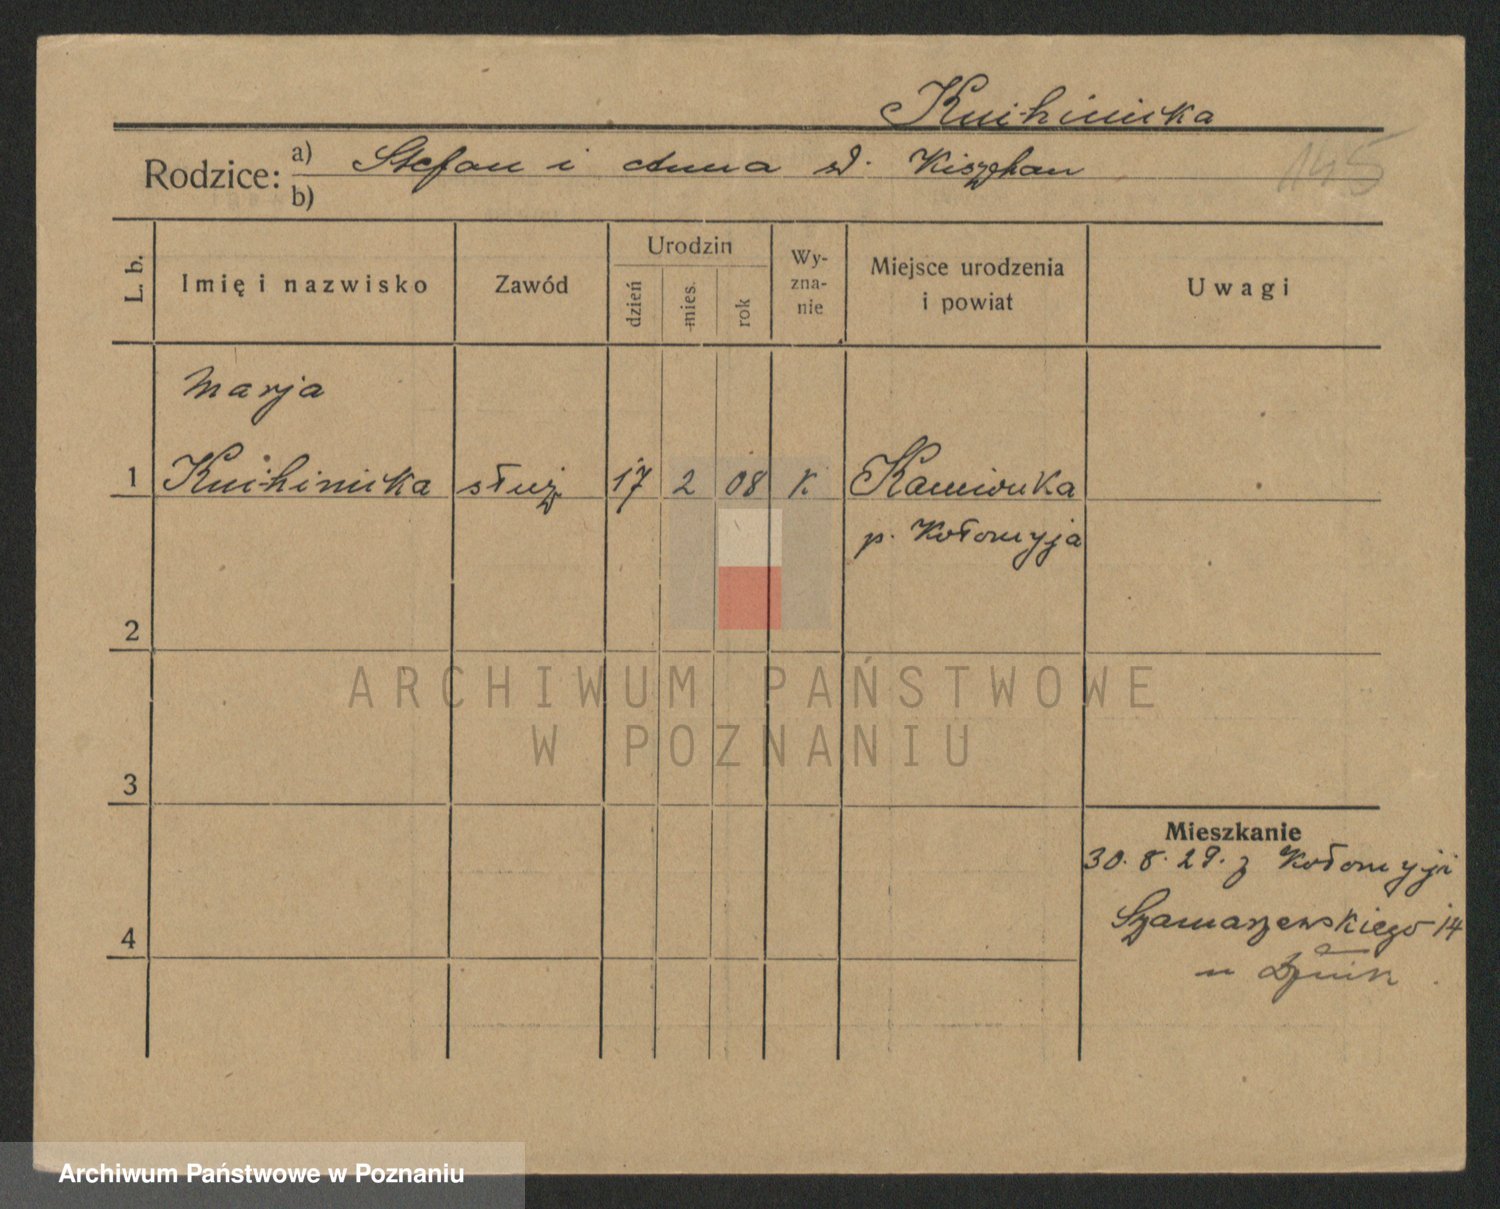 Knihinicka
Rodzice: a) Stefan i Anna d.
b)
145
L. b.
Imię i nazwisko
Zawód
Urodzin
dzień
mies.
rok
Wy-
zna-
nie
Miejsce urodzenia
i powiat
Uwagi
Marja
1 Knihinicka służ 17 2 08 K Kamionka
p. Kołomyja
2
3
4
Mieszkanie
30.8.29. z Kołomyji
Szamarzewskiego 14
u
ARCHIWUM PAŃSTWOWE
W POZNANIU
Archiwum Państwowe w Poznaniu